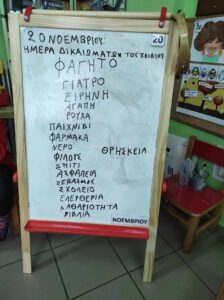 20 ΝΟΕΜΒΡΙΟΥ:
20
ΗΜΕΡΑ ΔΙΚΑΙΩΜΑΤΩΝ ΤΟΥ ΠΑΙΔΙΟΥ
ΦΑΓΗΤΟ
ΓΙΑΤΡΟ
ΕΙΡΗΝΗ
ΑΓΑΠΗ
ΡΟΥΧΑ
ΠΑΙΧΝΙΔΙ
ΦΑΡΜΑΚΑ
ΝΕΡΟ ΘΡΗΣΚΕΙΑ
ΦΙΛΟΥΣ
ΣΠΙΤΙ
ΑΣΦΑΛΕΙΑ
ΣΕΒΑΣΜΟΣ
ΣΧΟΛΕΙΟ
ΕΛΕΥΘΕΡΙΑ
ΚΑΘΑΡΙΟΤΗΤΑ
ΒΙΒΛΙΑ
ΝΟΕΜΒΡΙΟΥ